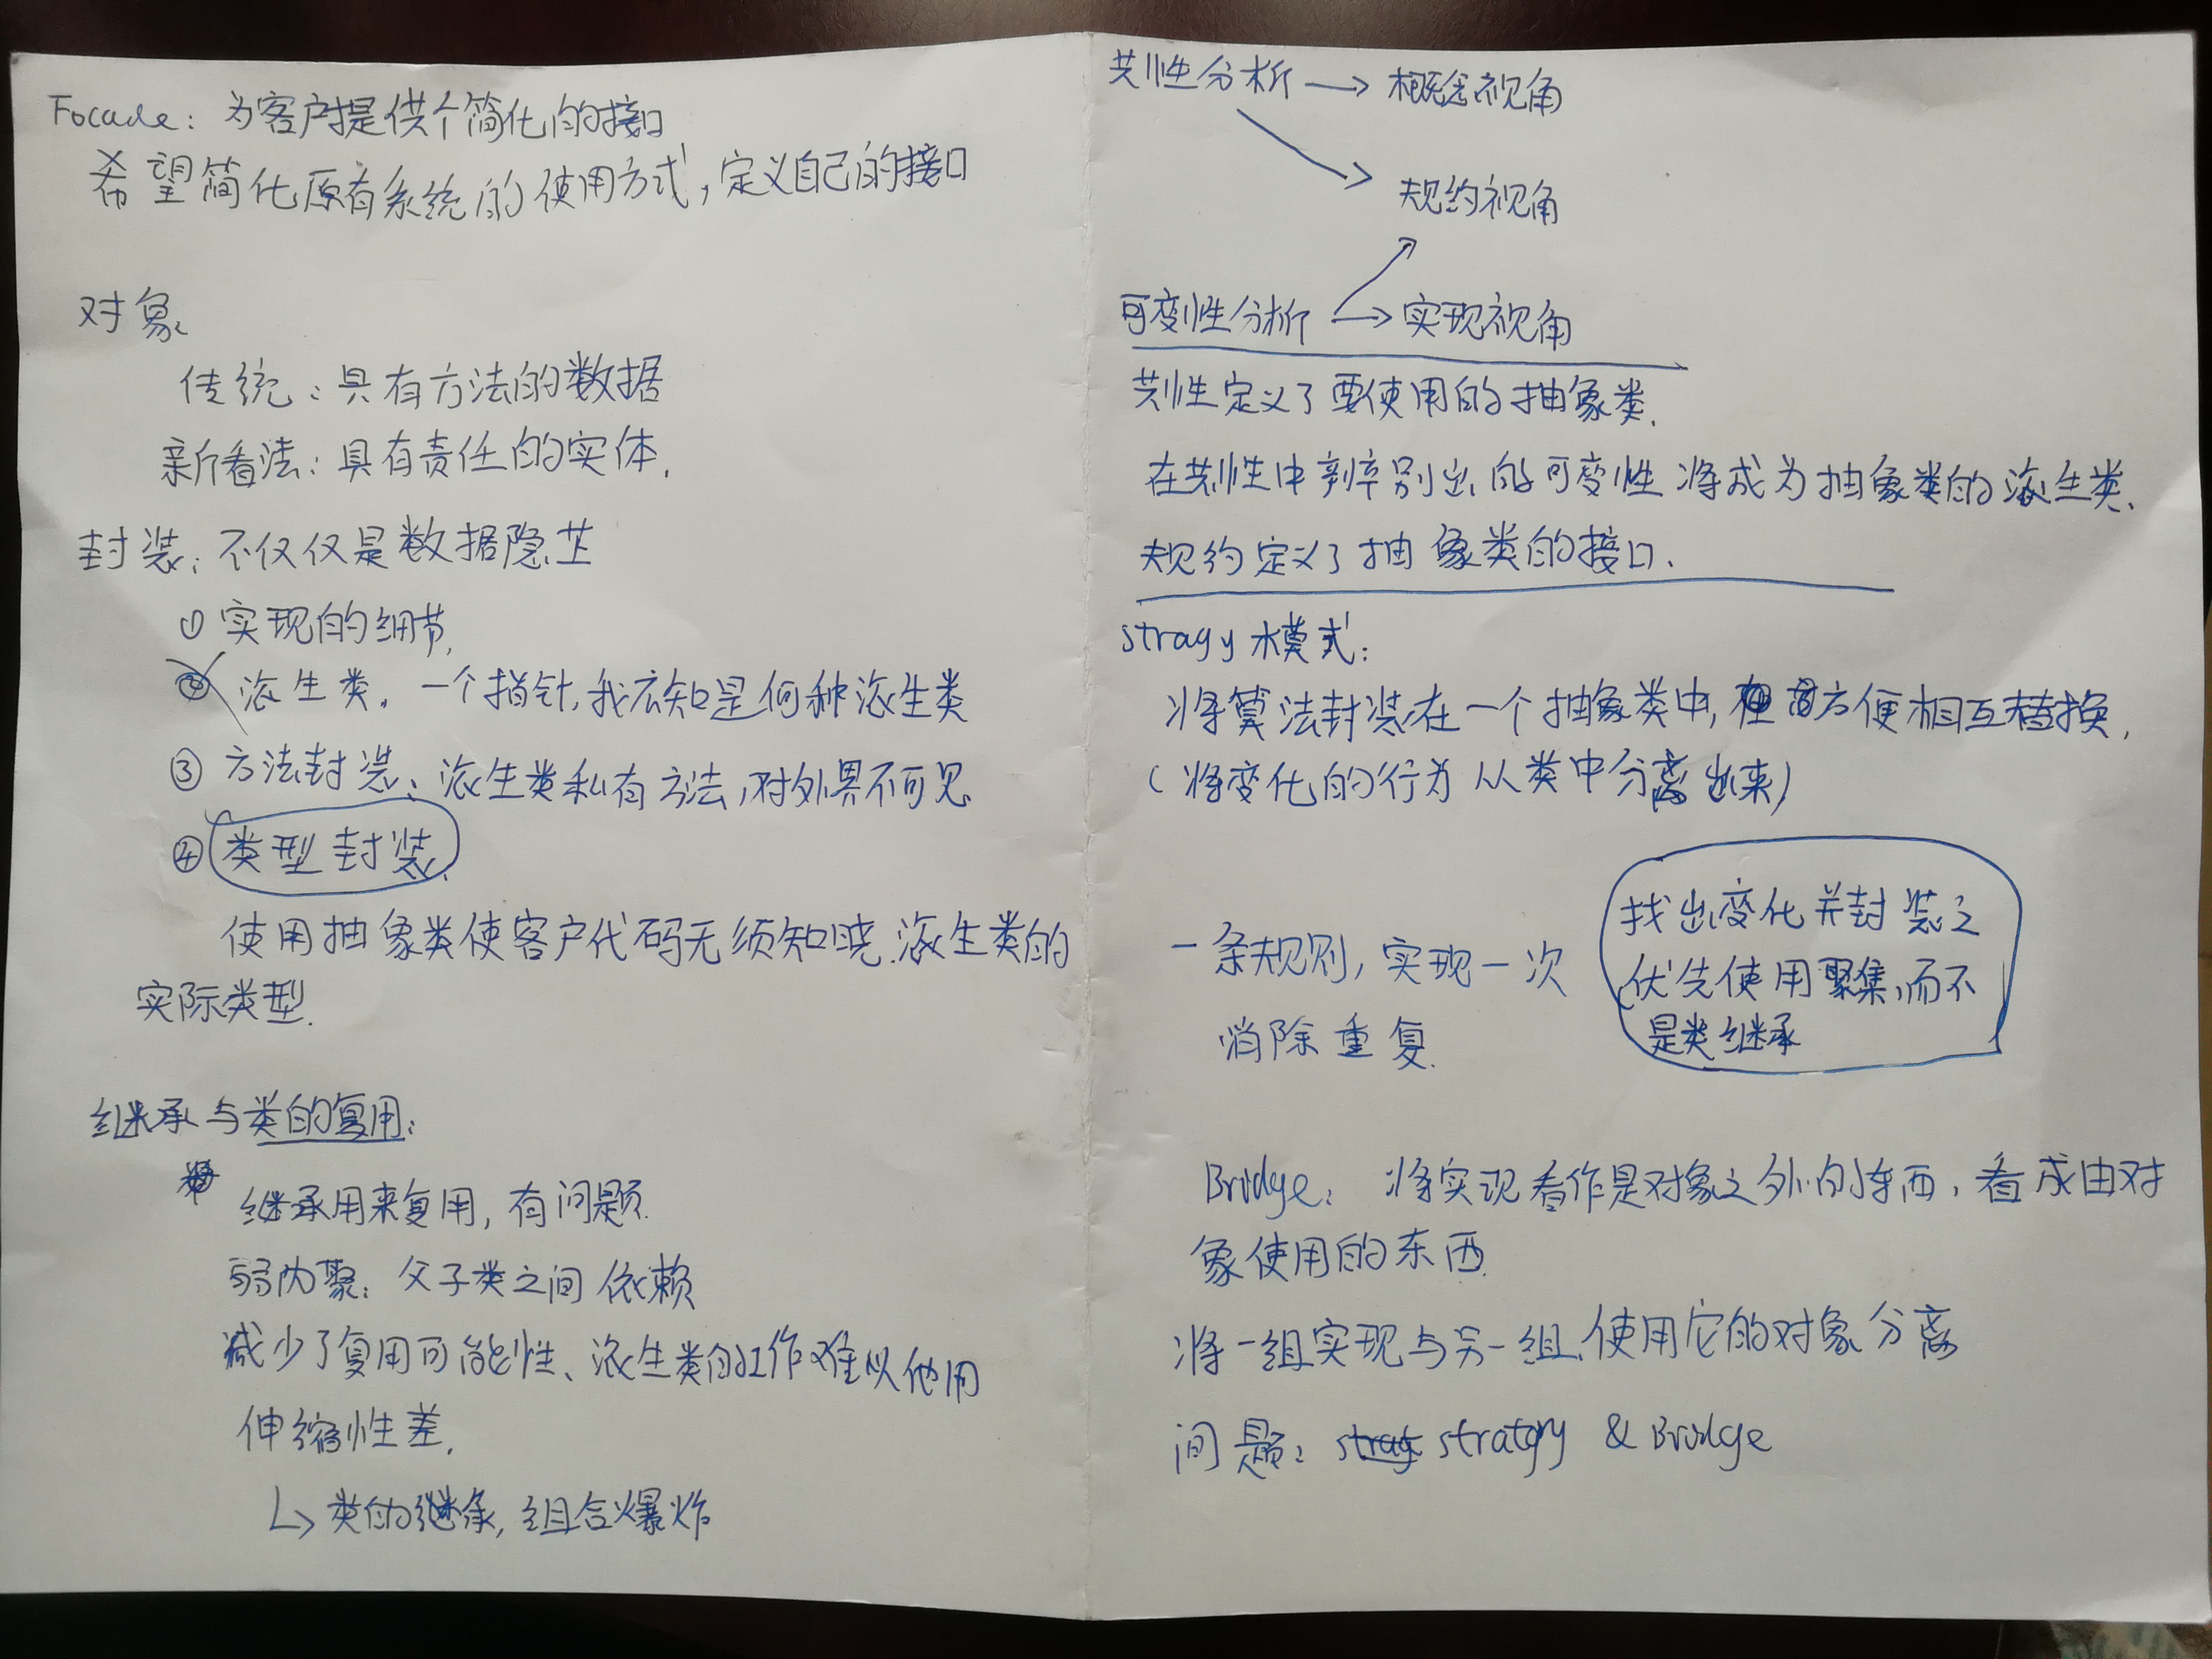 Facade: 为客户提供个简化的接口
希望简化原有系统的使用方式,定义自己的接口
对象
传统:具有方法的数据
新看法:具有责任的实体.
封装:不仅仅是数据隐芷
① 实现的细节.
② 派生类. 一个指针,我不知是何种派生类
③ 方法封装:派生类私有方法,对外界不可见
④ 类型封装.
使用抽象类使客户代码无须知晓派生类的
实际类型.
继承与类的复用:
继承用来复用,有问题.
弱内聚:父子类之间依赖
减少了复用可能性、派生类的工作难以他用
伸缩性差.
↳ 类的继承,组合爆炸
共性分析 → 概念视角
规约视角
可变性分析 → 实现视角
共性定义了要使用的抽象类.
在共性中辨别出的可变性将成为抽象类的派生类.
规约定义了抽象类的接口.
stragy 模式:
将算法封装在一个抽象类中,方便相互替换.
(将变化的行为从类中分离出来)
找出变化并封装之
优先使用聚集,而不
是类继承
一条规则,实现一次
消除重复.
Bridge: 将实现看作是对象之外的东西,看成由对
象使用的东西.
将一组实现与另一组使用它的对象分离
问题: stratgy & Bridge